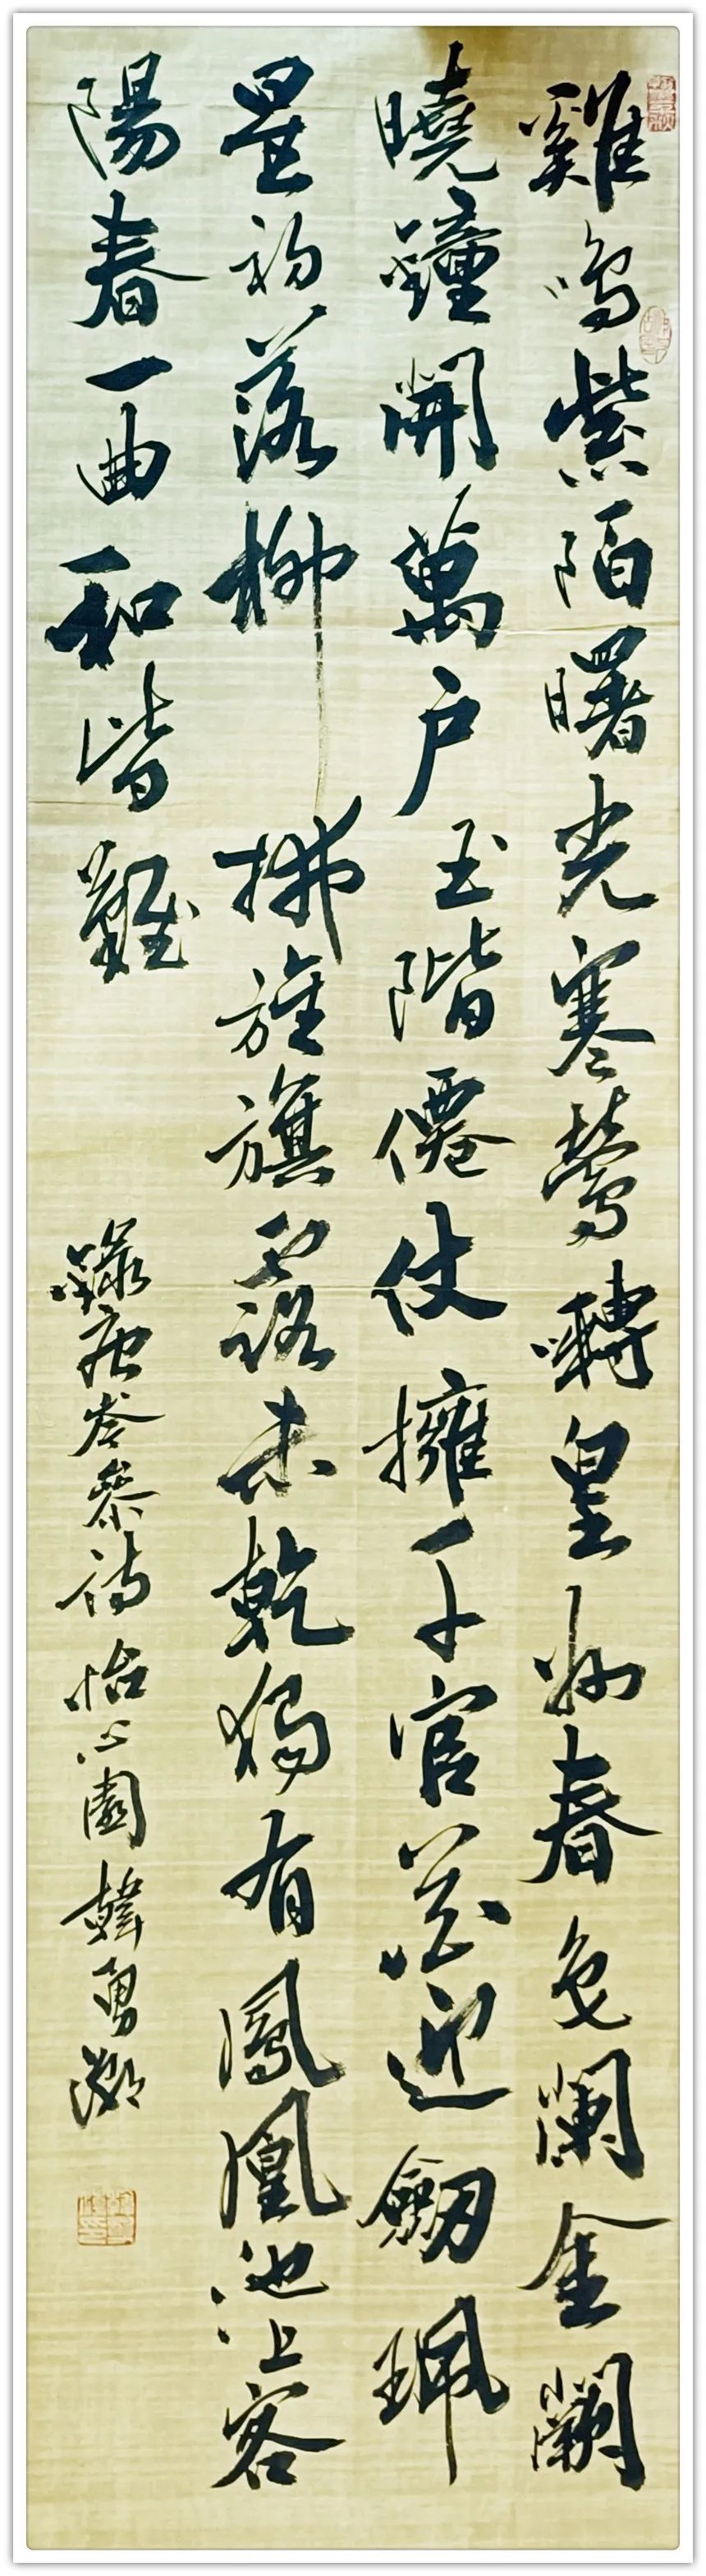 雞鳴紫陌曙光寒鶯囀皇州春色闌金闕
曉鐘開萬户玉階僊仗擁千官花迎劔珮
星初落柳拂旌旗露未乾獨有鳳凰池上客
陽春一曲和皆難
錄唐岑參詩怡心園韓勇